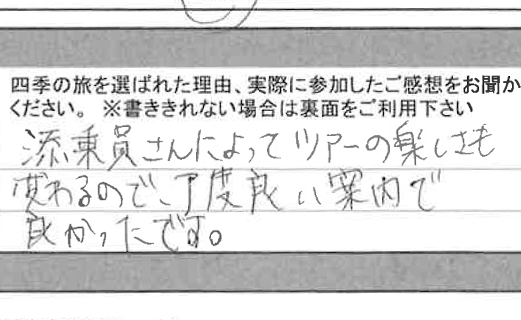 四季の旅を選ばれた理由、実際に参加したご感想をお聞か
ください。 ※書ききれない場合は裏面をご利用下さい
添乗員さんによってツアーの楽しさも
変わるので、丁度良い案内で
良かったです。